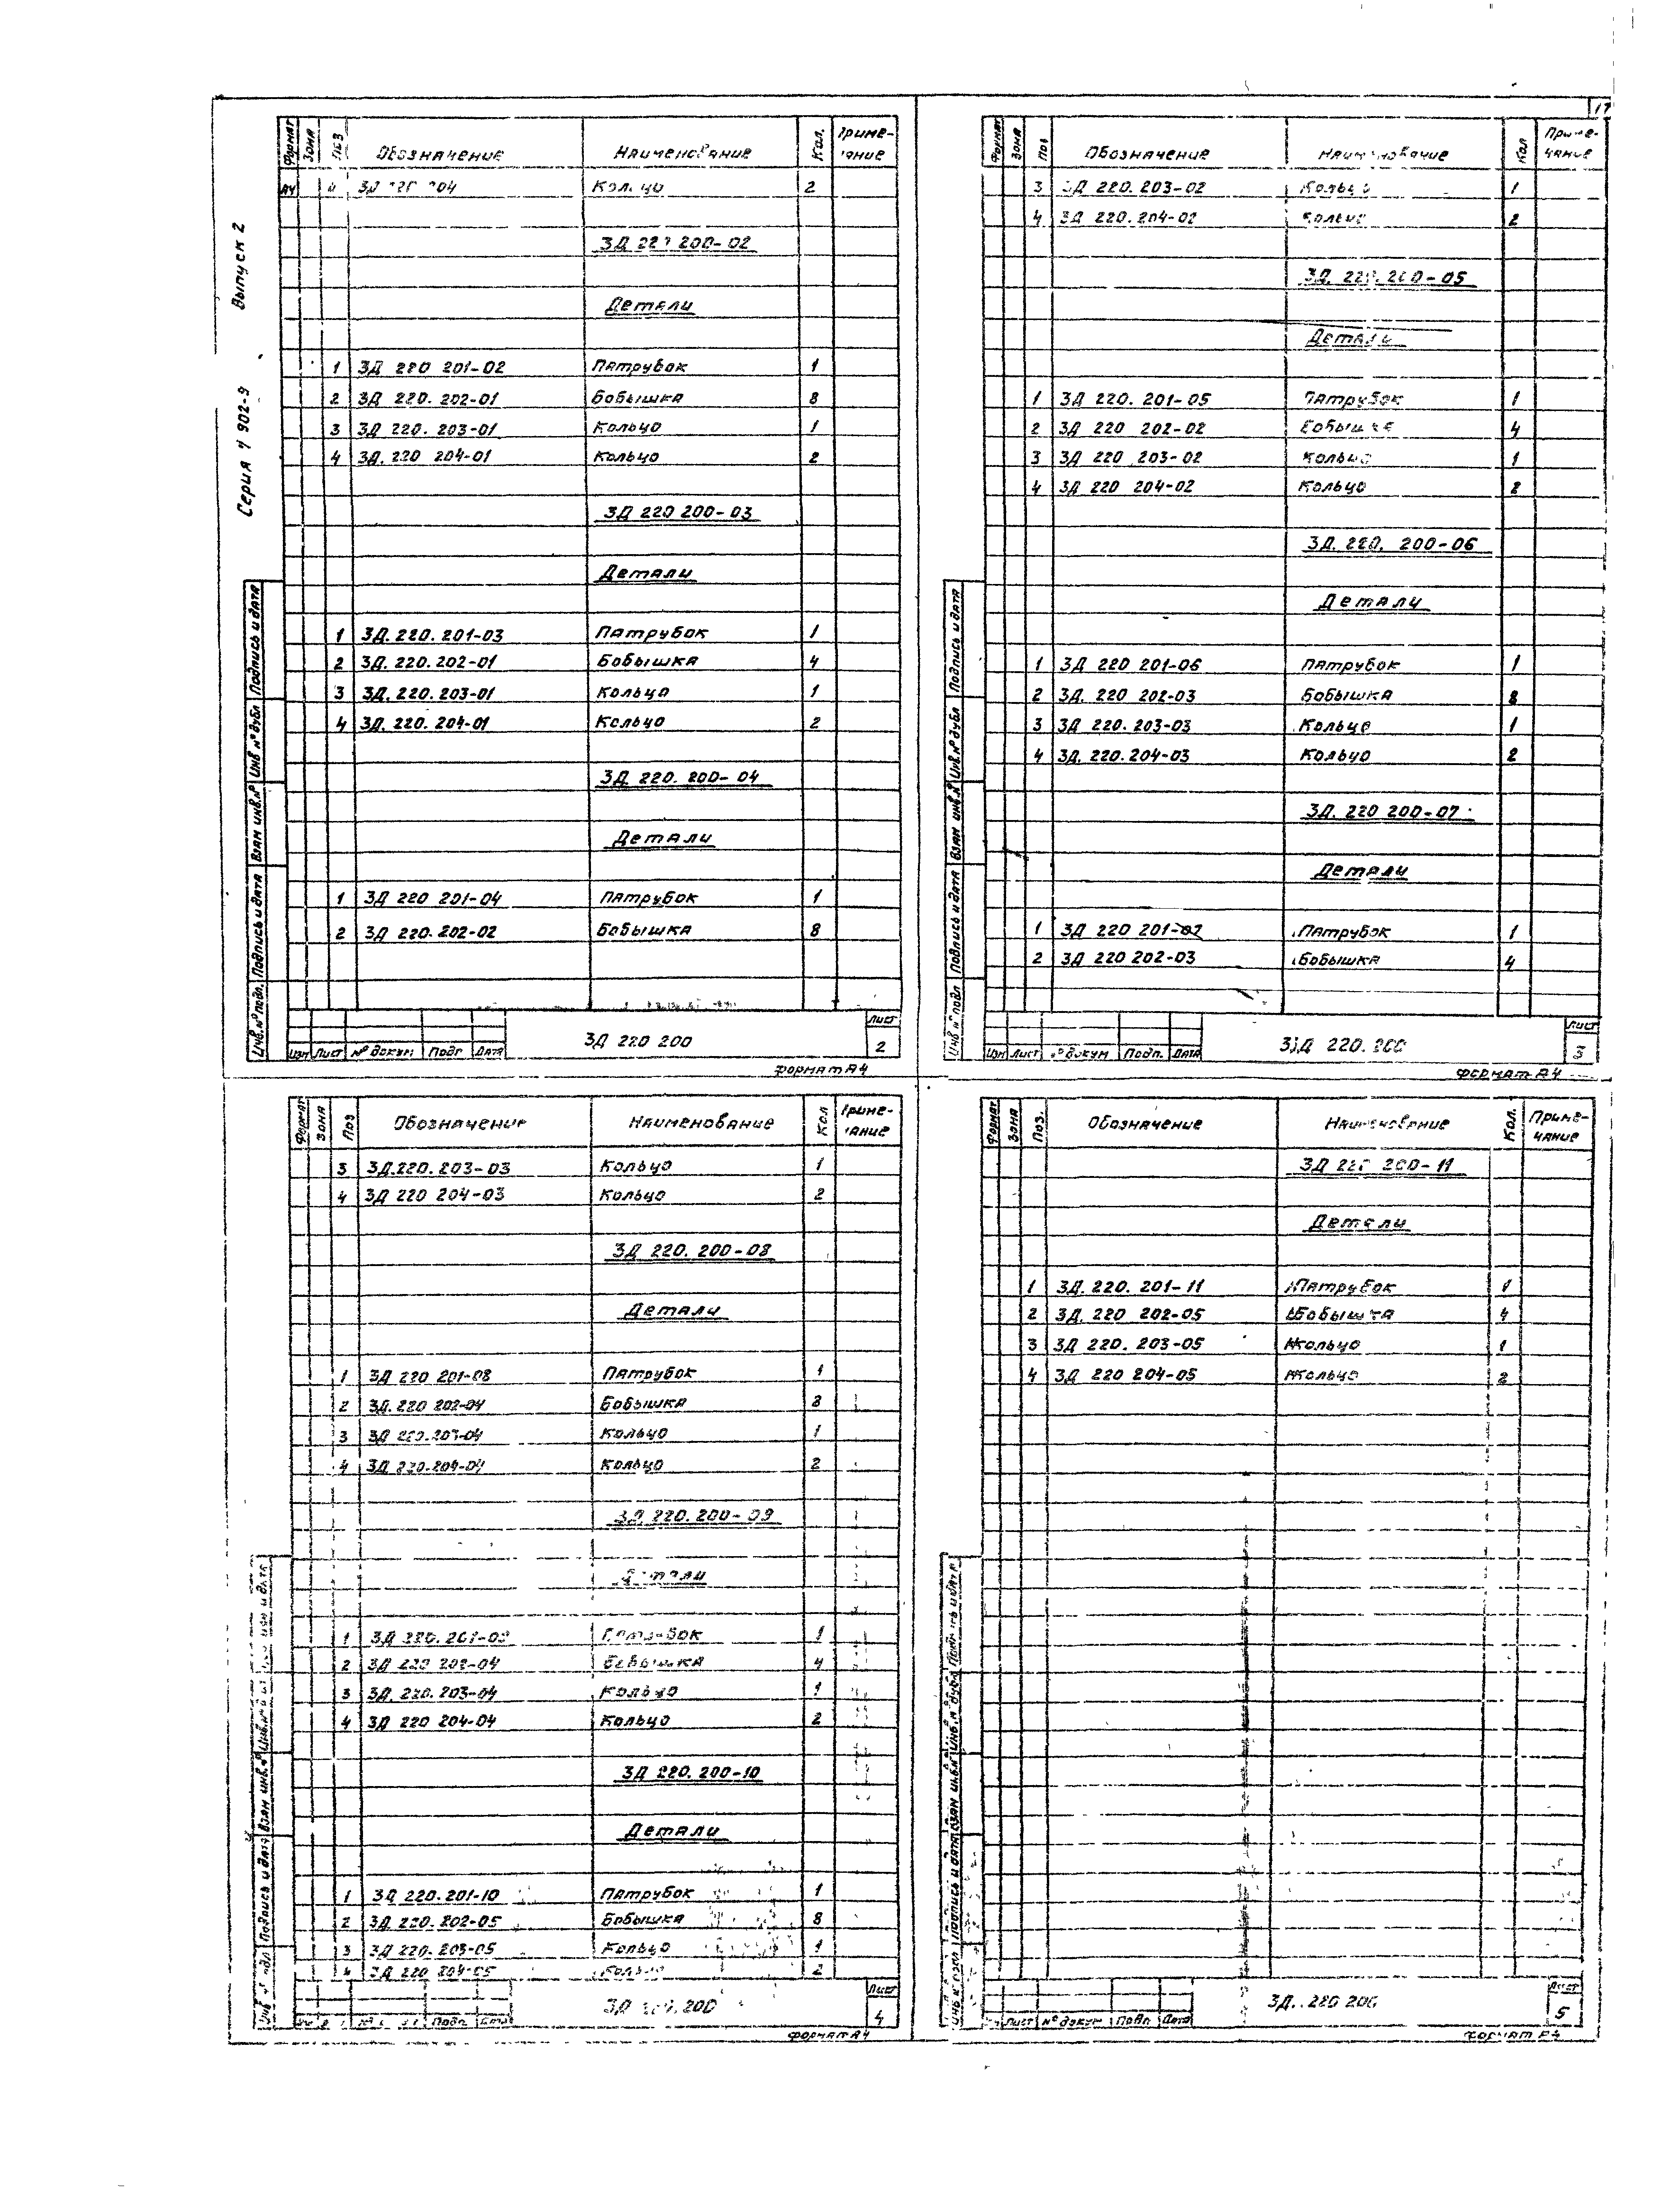 17
Серия 4 902-9 Выпуск 2
Формат Зона Поз Обозначение Наименование Кол. Приме-
чание
А4 4 3Д 220 204 Кольцо 2
3Д 220 200-02
Детали
1 3Д 220 201-02 Патрубок 1
2 3Д 220. 202-01 Бобышка 8
3 3Д 220. 203-01 Кольцо 1
4 3Д. 220 204-01 Кольцо 2
3Д 220 200-03
Детали
1 3Д. 220. 201-03 Патрубок 1
2 3Д. 220. 202-01 Бобышка 4
3 3Д. 220. 203-01 Кольцо 1
4 3Д. 220. 204-01 Кольцо 2
3Д 220. 200-04
Детали
1 3Д 220 201-04 Патрубок 1
2 3Д 220. 202-02 Бобышка 8
Инв. № подл. Подпись и дата Взам инв. № Инв № дубл Подпись и дата
Изм Лист № докум Подп Дата
3Д 220 200
Лист
2
Формат А4
Формат Зона Поз Обозначение Наименование Кол Приме-
чание
3 3Д 220. 203-02 Кольцо 1
4 3Д 220. 204-02 Кольцо 2
3Д. 220. 200-05
Детали
1 3Д 220. 201-05 Патрубок 1
2 3Д 220 202-02 Бобышка 4
3 3Д 220 203-02 Кольцо 1
4 3Д 220 204-02 Кольцо 2
3Д. 220. 200-06
Детали
1 3Д 220 201-06 Патрубок 1
2 3Д. 220 202-03 Бобышка 8
3 3Д 220. 203-03 Кольцо 1
4 3Д. 220. 204-03 Кольцо 2
3Д. 220 200-07
Детали
1 3Д 220 201-07 Патрубок 1
2 3Д 220 202-03 Бобышка 4
Инв № подл Подпись и дата Взам инв. № Инв. № дубл Подпись и дата
Изм Лист № докум Подп. Дата
3Д 220. 200
Лист
3
Формат А4
Формат Зона Поз Обозначение Наименование Кол Приме-
чание
3 3Д.220. 203-03 Кольцо 1
4 3Д 220 204-03 Кольцо 2
3Д 220. 200-08
Детали
1 3Д 220 201-08 Патрубок 1
2 3Д. 220 202-04 Бобышка 8
3 3Д 220.203-04 Кольцо 1
4 3Д 220.204-04 Кольцо 2
3Д 220. 200-09
Детали
1 3Д 220. 201-09 Патрубок 1
2 3Д 220 202-04 Бобышка 4
3 3Д. 220. 203-04 Кольцо 1
4 3Д 220 204-04 Кольцо 2
3Д 220. 200-10
Детали
1 3Д 220. 201-10 Патрубок 1
2 3Д 220. 202-05 Бобышка 8
3 3Д 220. 203-05 Кольцо 1
4 3Д 220 204-05 Кольцо 2
Подпись и дата Взам инв. №
Подп. Дата
3Д 220. 200
Лист
4
Формат А4
Формат Зона Поз. Обозначение Наименование Кол. Приме-
чание
3Д 220 200-11
Детали
1 3Д. 220. 201-11 Патрубок 1
2 3Д. 220 202-05 Бобышка 4
3 3Д 220. 203-05 Кольцо 1
4 3Д 220 204-05 Кольцо 2
Подпись и дата Взам инв. № Инв. № дубл Подпись и дата
Лист № докум Подп Дата
3Д. 220 200
Лист
5
Формат А4